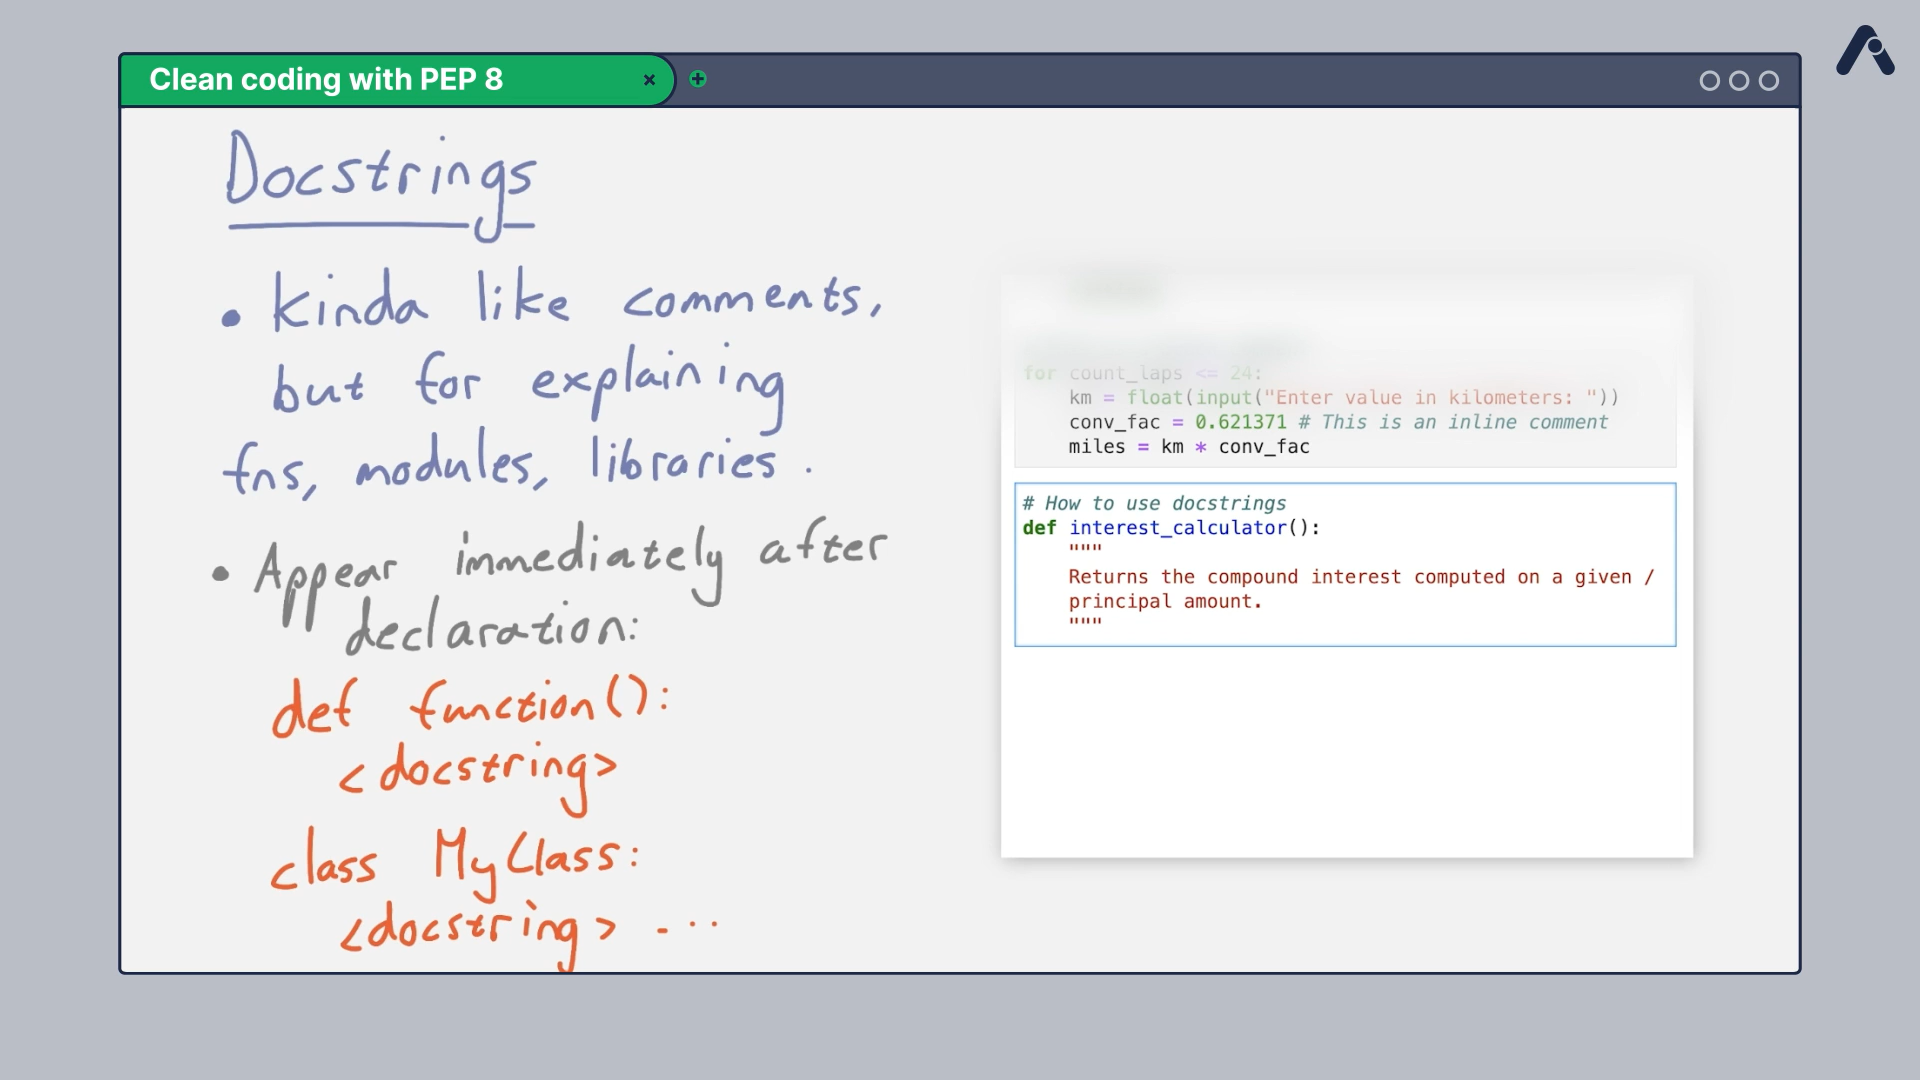 Clean coding with PEP 8
Docstrings
• Kinda like comments,
but for explaining
fns, modules, libraries.
• Appear immediately after
declaration:
def function():
<docstring>
class MyClass:
<docstring> ...
for count_laps <= 24:
km = float(input("Enter value in kilometers: "))
conv_fac = 0.621371 # This is an inline comment
miles = km * conv_fac
# How to use docstrings
def interest_calculator():
"""
Returns the compound interest computed on a given /
principal amount.
"""